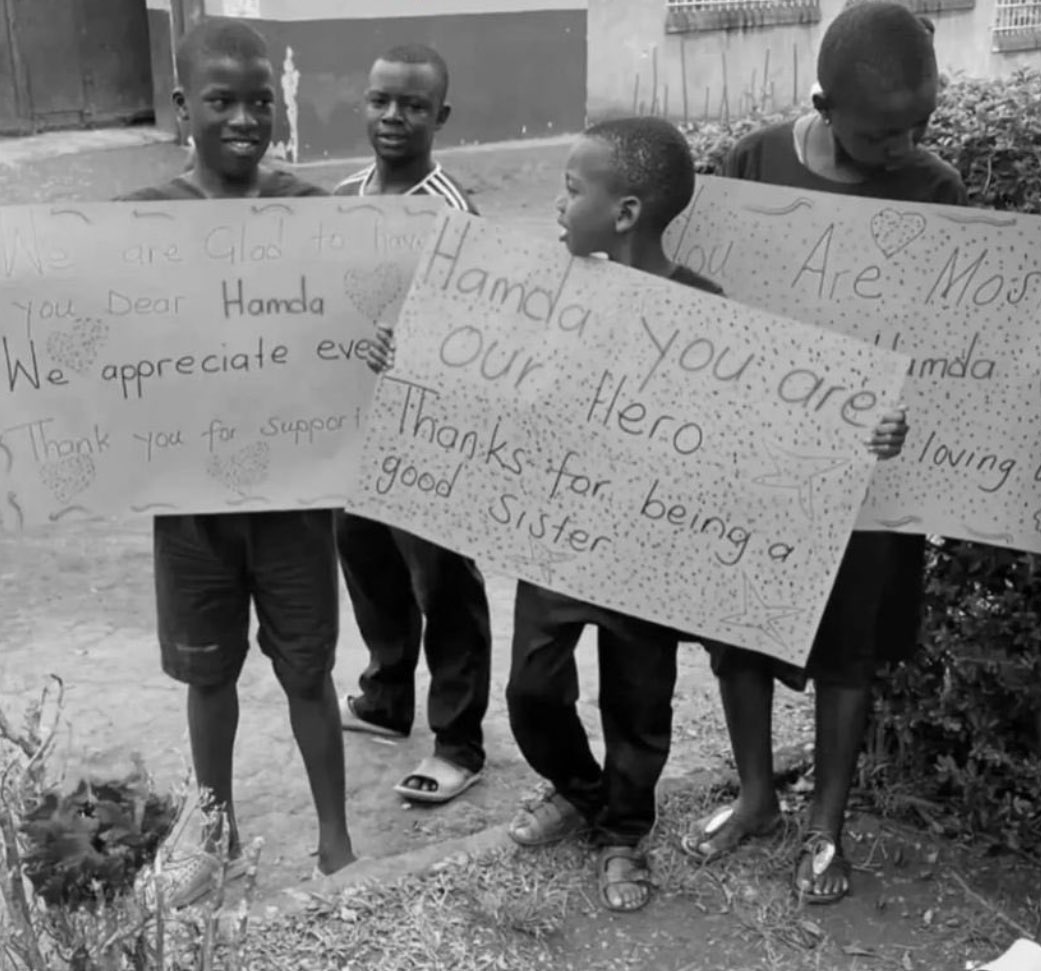 We are Glad to have
you Dear Hamda
We appreciate eve
Thank you for support
Hamda you are
Our Hero
Thanks for being a
good Sister
You Are Mos
Hamda
loving